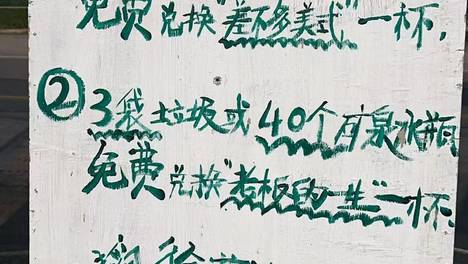 免费兑换"差不多美式"一杯,
② 3袋垃圾或40个矿泉水瓶
免费兑换"老板的一生"一杯.